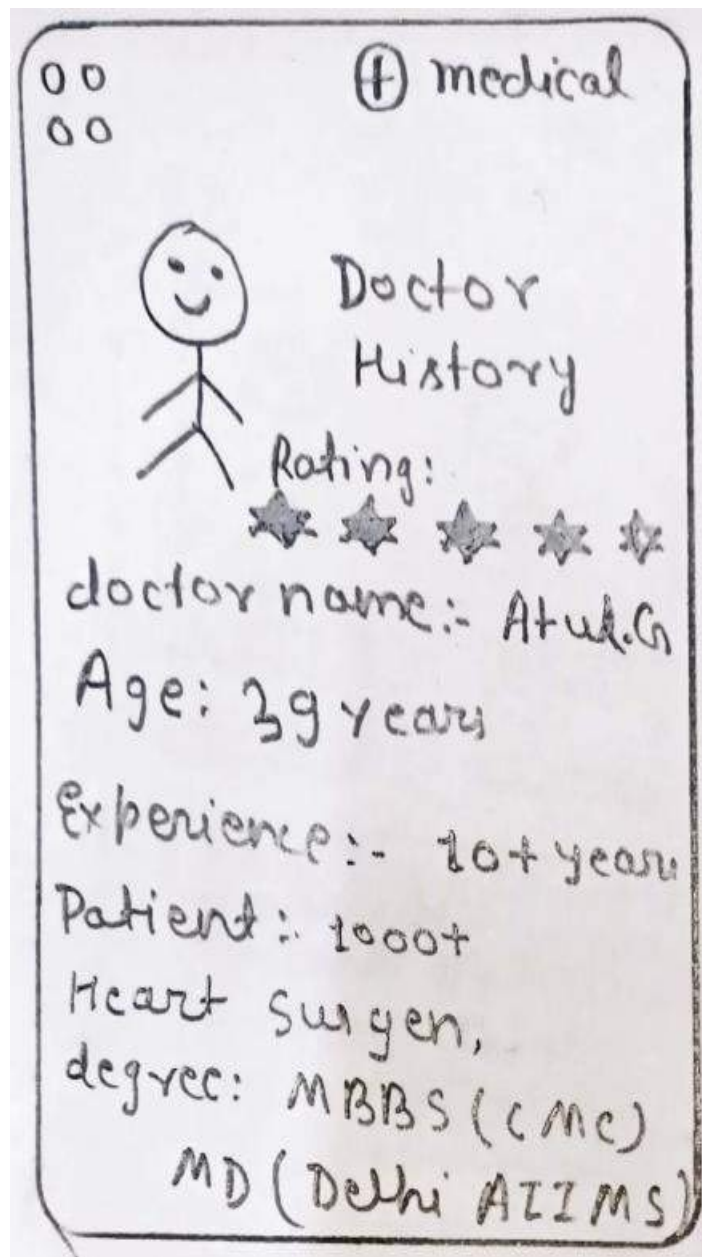 medical
Doctor
History
Rating:
doctor name:- Atul.G
Age: 39 years
Experience:- 10+ years
Patient:- 1000+
Heart surgen,
degree: MBBS (CMC)
MD (Delhi AIIMS)